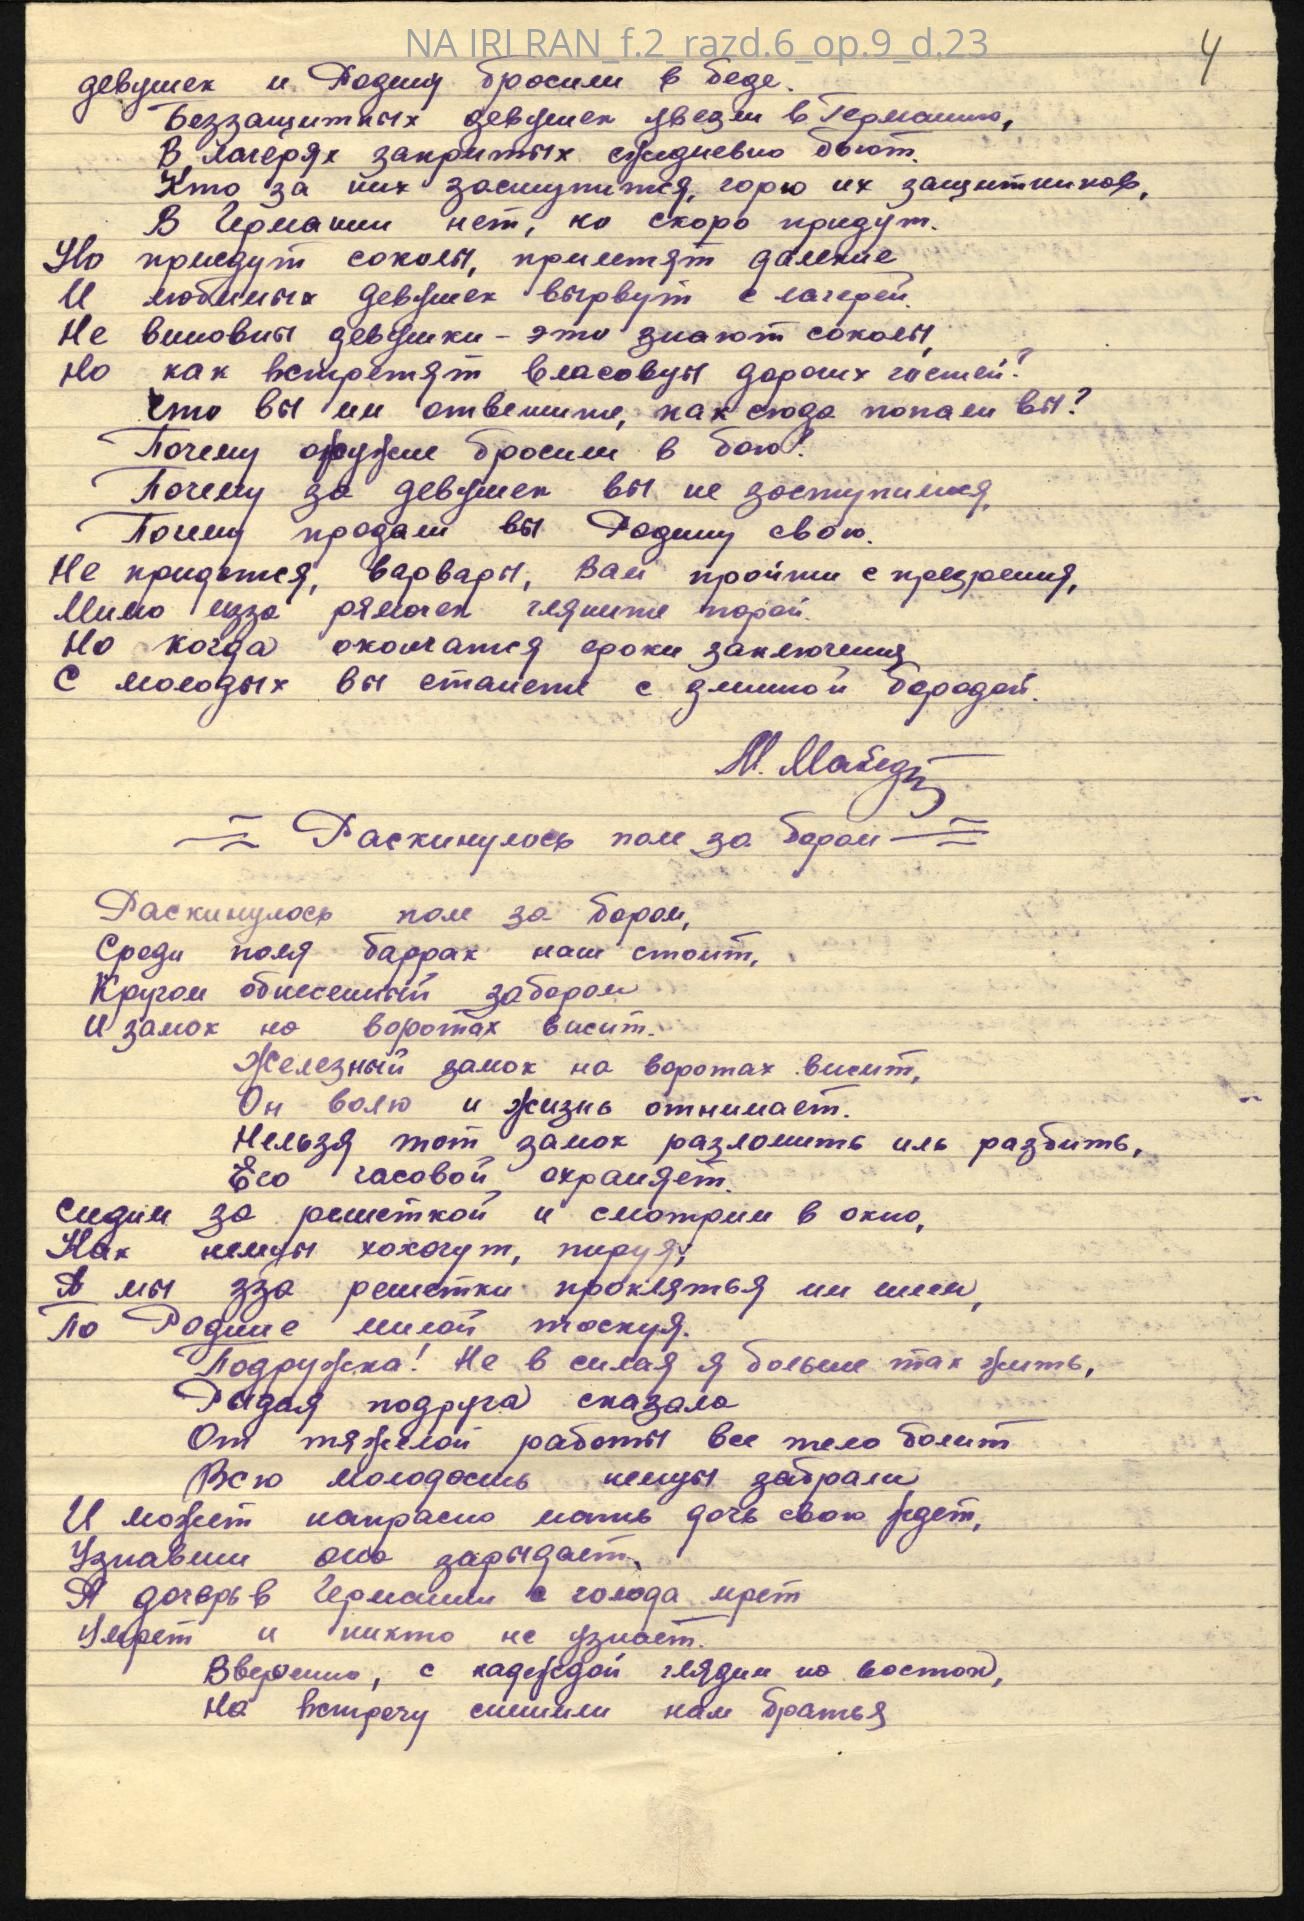 NA IRI RAN_f.2_razd.6_op.9_d.23
4
девушек и Родину бросили в беде.
Беззащитных девушек увезли в Германию,
В лагерях закрытых ежедневно бьют.
Кто за них заступится, горю их защитников,
В Германии нет, но скоро придут.
Но приедут соколы, прилетят далекие
И любимых девушек вырвут с лагерей.
Не виновны девушки – это знают соколы,
Но как встретят власовцы дорогих гостей?
Что вы им ответите, как сюда попали вы?
Почему оружие бросили в бою?
Почему за девушек вы не заступились,
Почему продали вы Родину свою.
Не придется, варвары, Вам пройти с презрения,
Мимо изза рямочек гляните порой.
Но когда окончатся сроки заключения
С молодых вы станете с длинной бородой.
М.
Раскинулось поле за бором
Раскинулось поле за бором,
Среди поля баррак наш стоит,
Кругом обнесенный забором
И замок на воротах висит.
Железный замок на воротах висит,
Он волю и жизнь отнимает.
Нельзя тот замок разломить иль разбить,
Его часовой охраняет.
Сидим за решеткой и смотрим в окно,
Как немцы хохочут, пируя;
А мы зза решетки проклятья им шлем,
По Родине милой тоскуя.
Подружка! Не в силая я больше так жить,
Рыдая подруга сказала
От тяжелой работы все тело болит
Всю молодость немцы забрали
И может напрасно мать дочь свою ждет,
Узнавши она зарыдает.
А дочерь в Германии с голода мрет
Умрет и никто не узнает.
Вверенно, с надеждой глядим на восток,
На встречу спешили нам братья